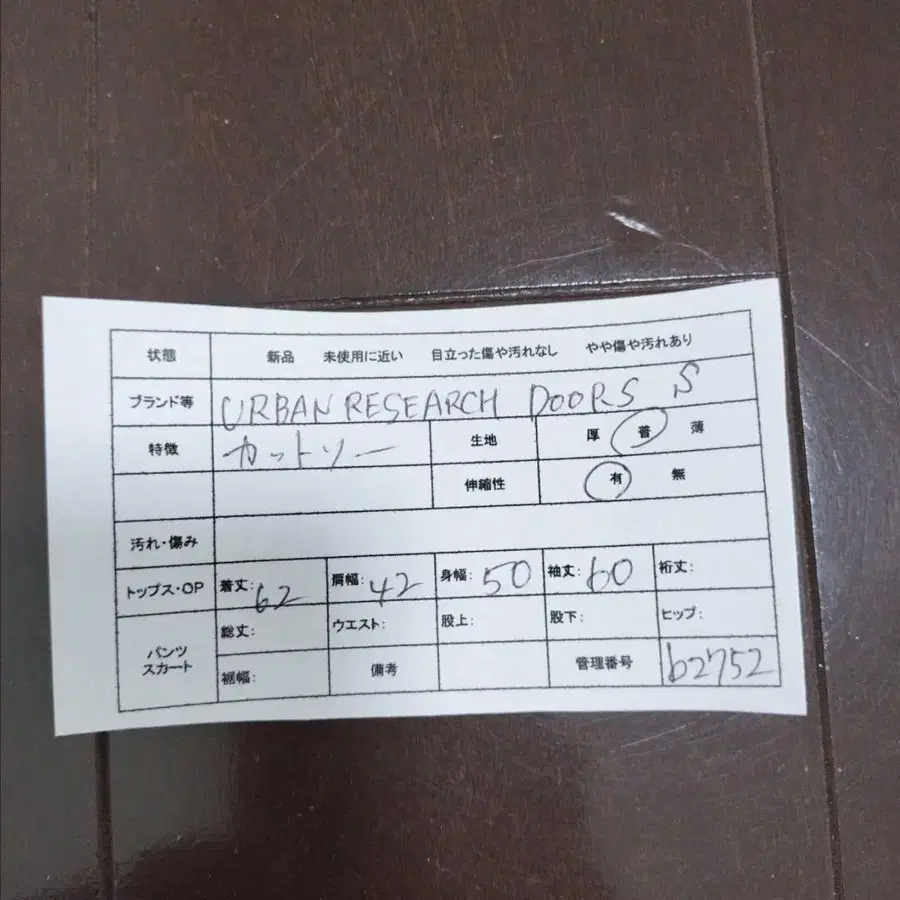 状態 新品 未使用に近い 目立った傷や汚れなし やや傷や汚れあり
ブランド等 URBAN RESEARCH DOORS S
特徴 カットソー 生地 厚 普 薄
伸縮性 有 無
汚れ・傷み
トップス・OP 着丈: 62 肩幅: 42 身幅: 50 袖丈: 60 裄丈:
パンツ
スカート
総丈: ウエスト: 股上: 股下: ヒップ:
裾幅: 備考 管理番号 b2752